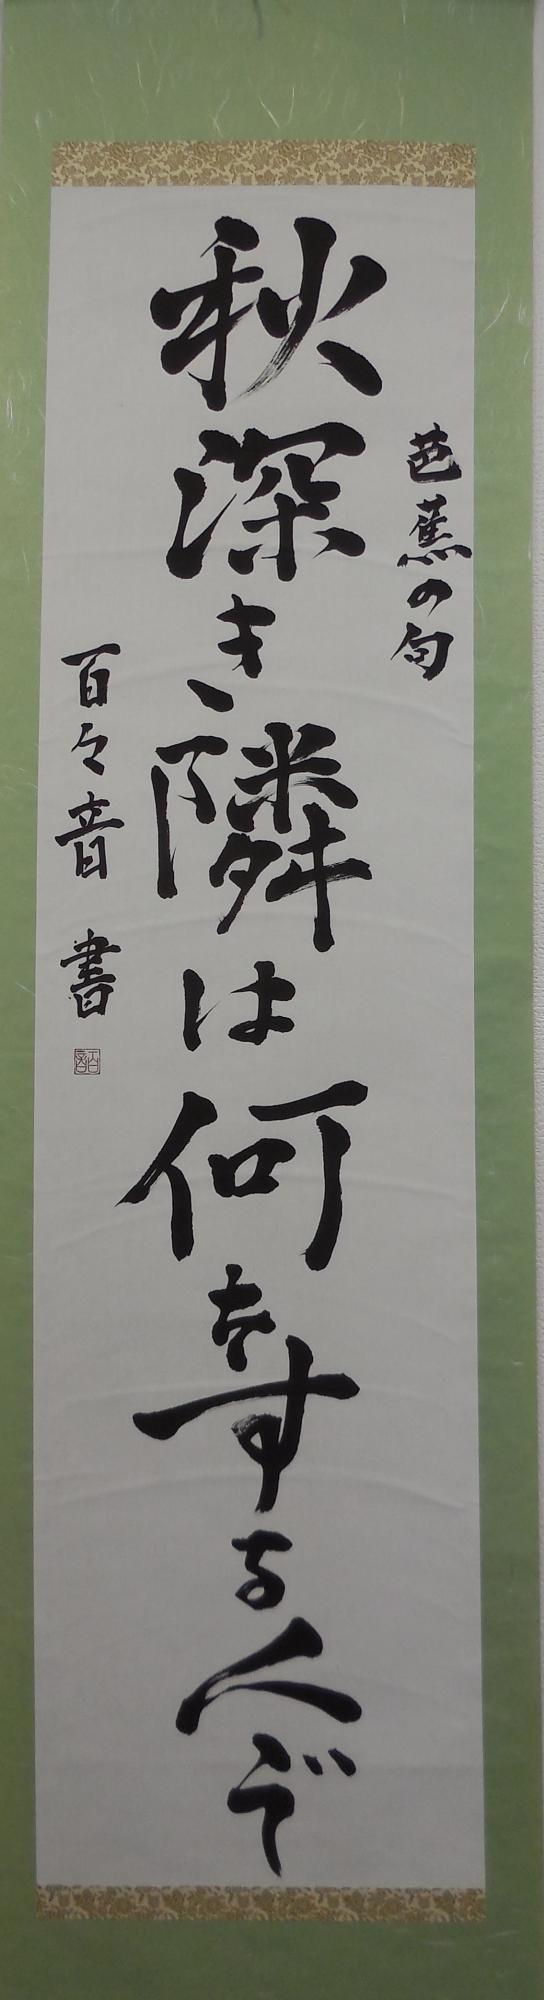 芭蕉の句
秋深き隣は何をする人ぞ
百々音 書